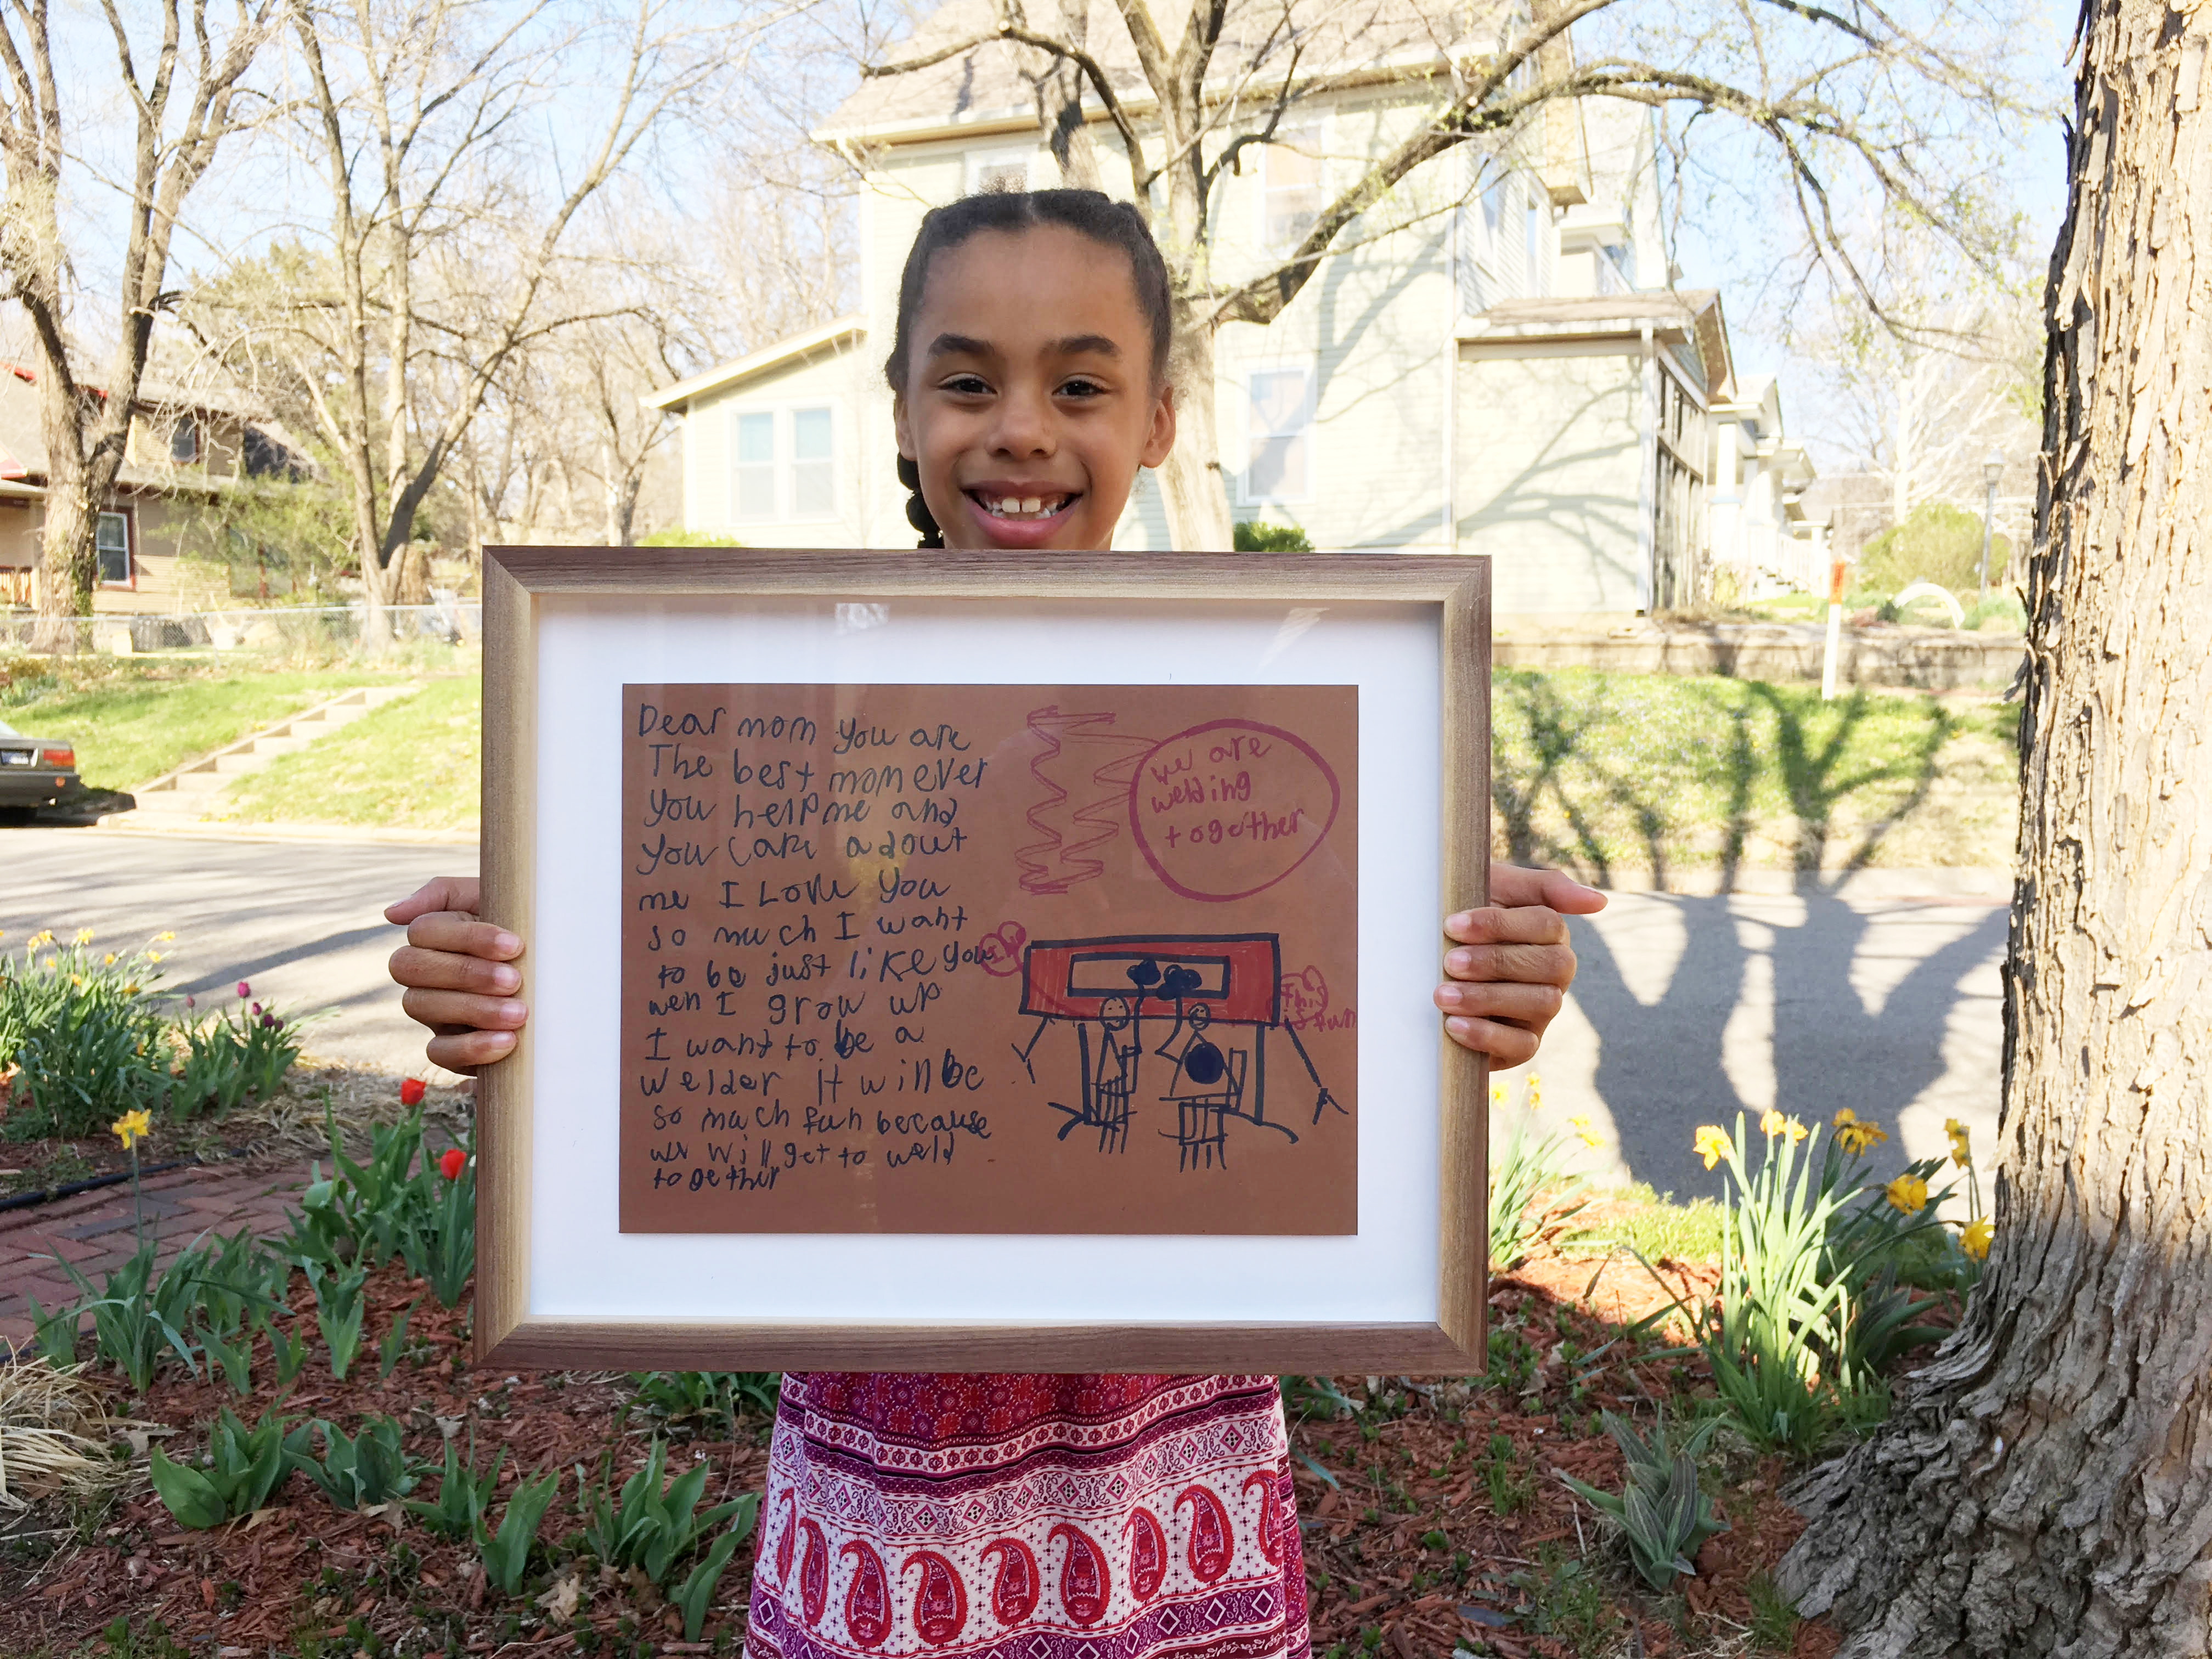 Dear mom you are
The best mom ever
you help me and
you care adout
me I Love you
so much I want
to be just like you
wen I grow up
I want to be a
welder it will be
so much fun because
we will get to weld
together
we are
welding
together
this
is fun